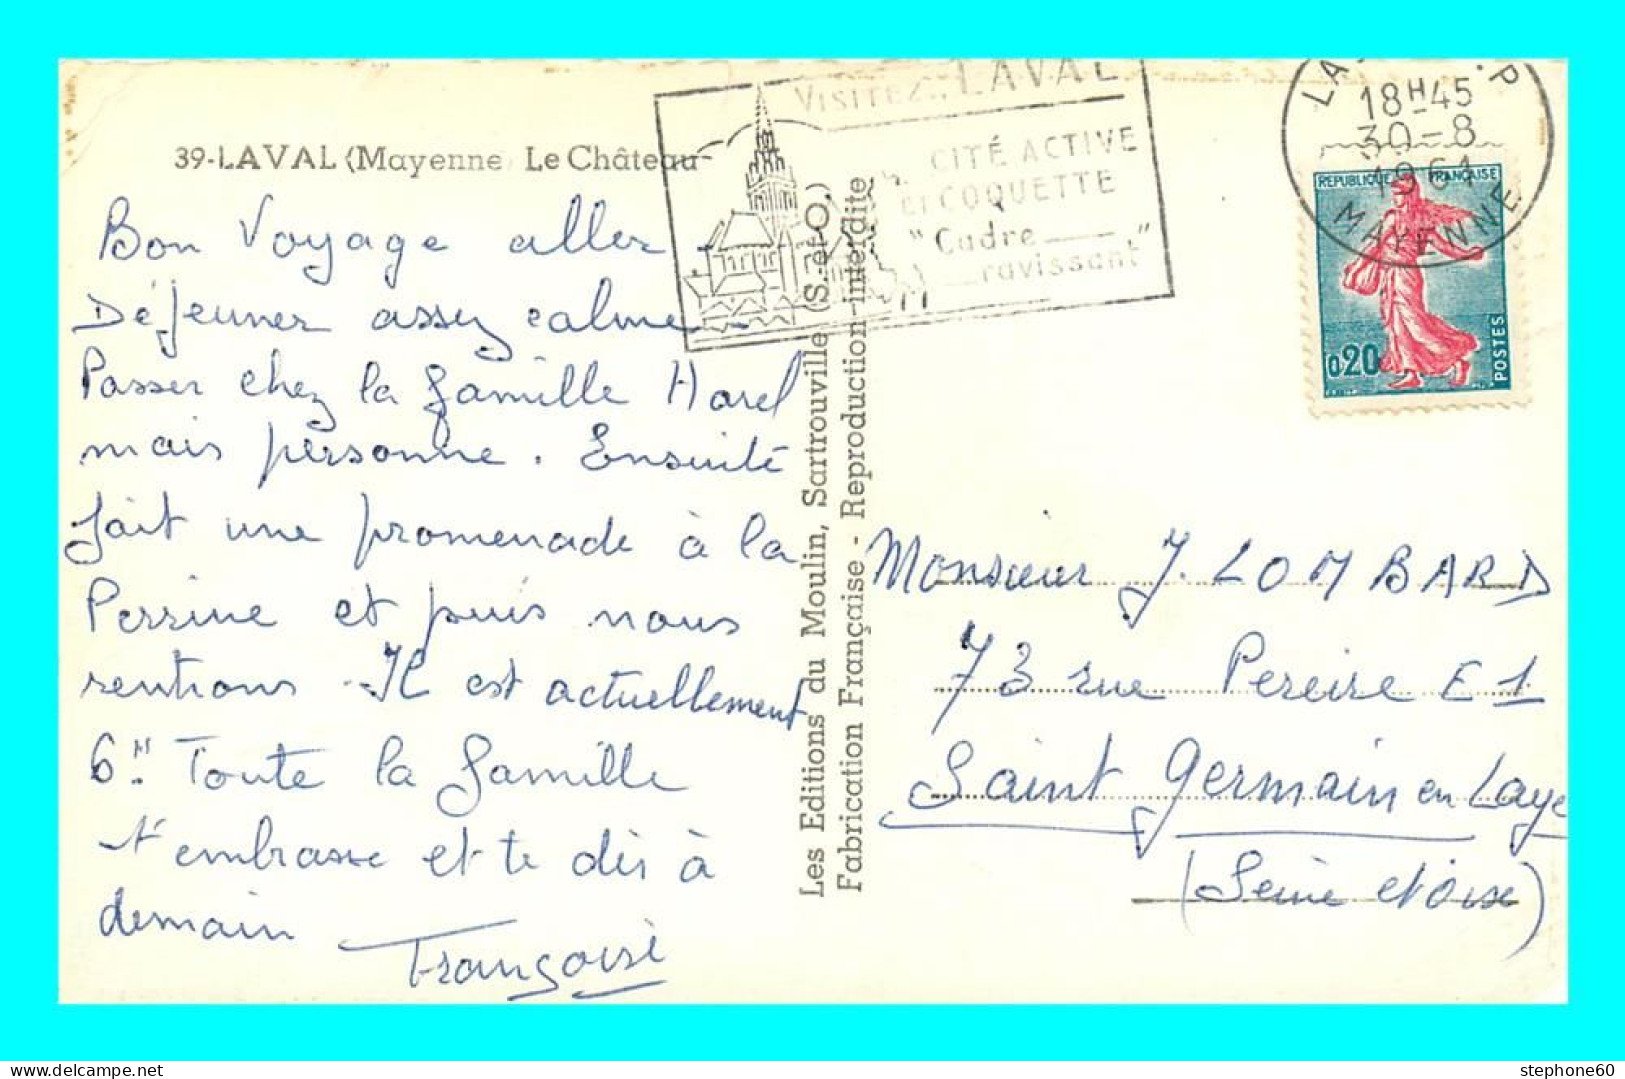 39-LAVAL (Mayenne) Le Château
Bon Voyage aller
Déjeuner assez calme
Passer chez la famille Harel
mais personne. Ensuite
fait une promenade à la
Perrine et puis nous
rentrons. Il est actuellement
6H Toute la famille
t'embrasse et te dis à
demain
Françoise
Les Editions du Moulin, Sartrouville (S.-et-O.)
Fabrication Française - Reproduction interdite
VISITEZ... LAVAL
CITÉ ACTIVE
ET COQUETTE
"Cadre
ravissant"
18H45
30-8
1961
MAYENNE
REPUBLIQUE FRANÇAISE
0,20
POSTES
Monsieur J. LOMBARD
73 rue Pereire E1
Saint Germain en Laye
(Seine et Oise)
stephone60